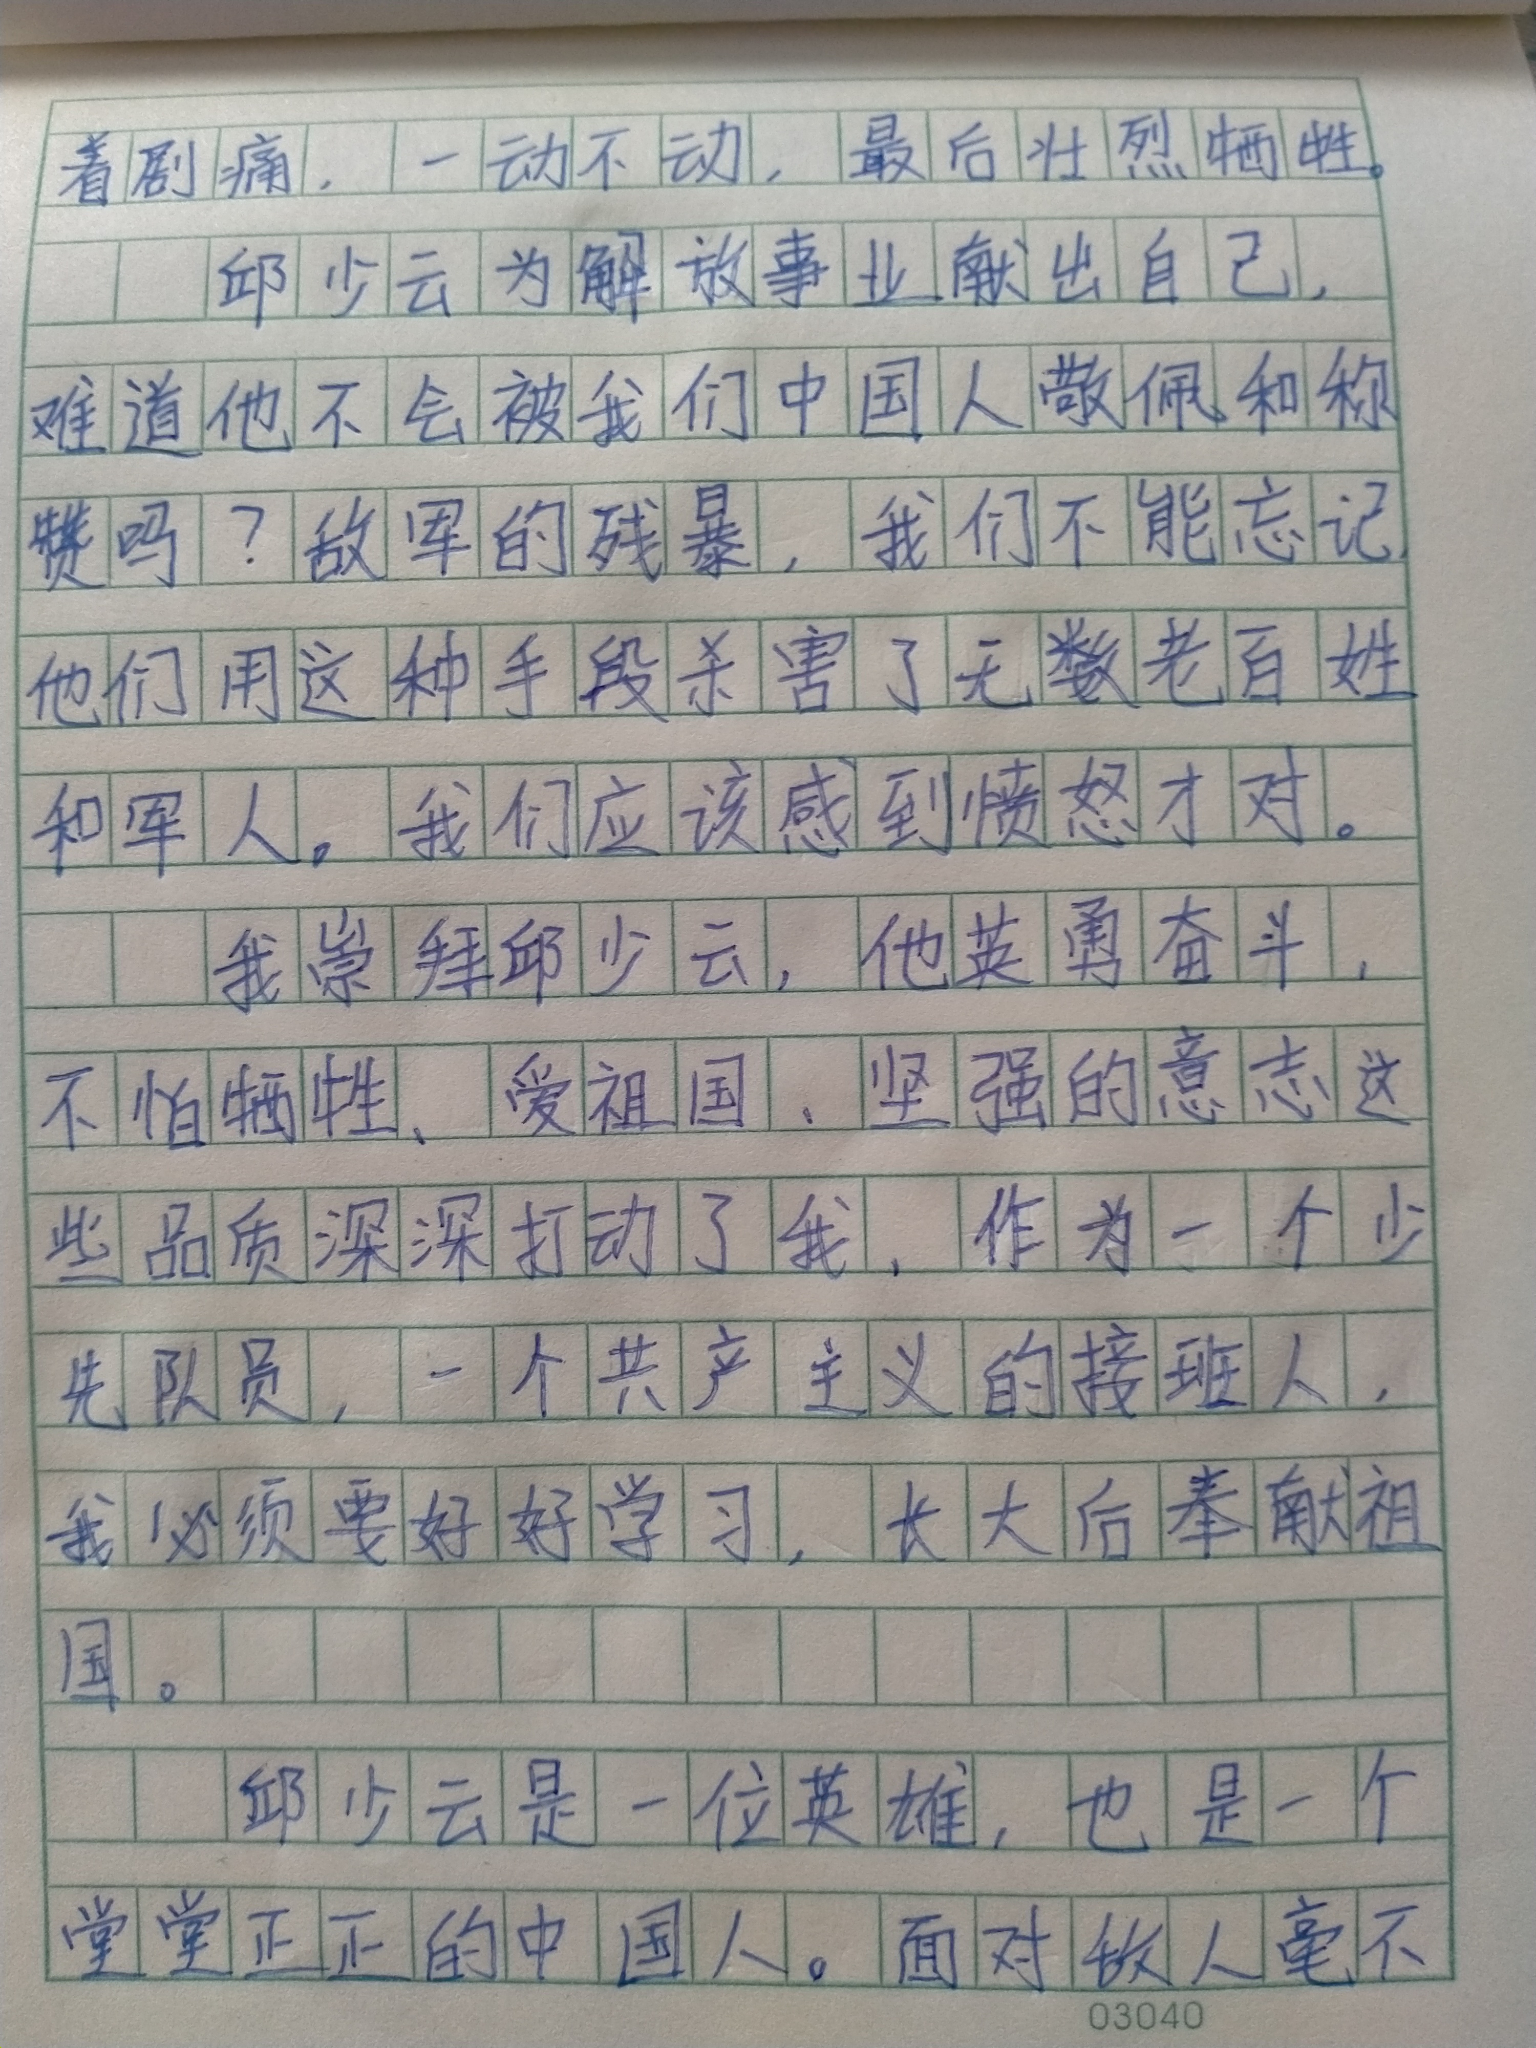 着剧痛，一动不动，最后壮烈牺牲。
邱少云为解放事业献出自己，
难道他不会被我们中国人敬佩和称
赞吗？敌军的残暴，我们不能忘记，
他们用这种手段杀害了无数老百姓
和军人。我们应该感到愤怒才对。
我崇拜邱少云，他英勇奋斗，
不怕牺牲、爱祖国、坚强的意志这
些品质深深打动了我，作为一个少
先队员，一个共产主义的接班人，
我必须要好好学习，长大后奉献祖
国。
邱少云是一位英雄，也是一个
堂堂正正的中国人。面对敌人毫不
03040